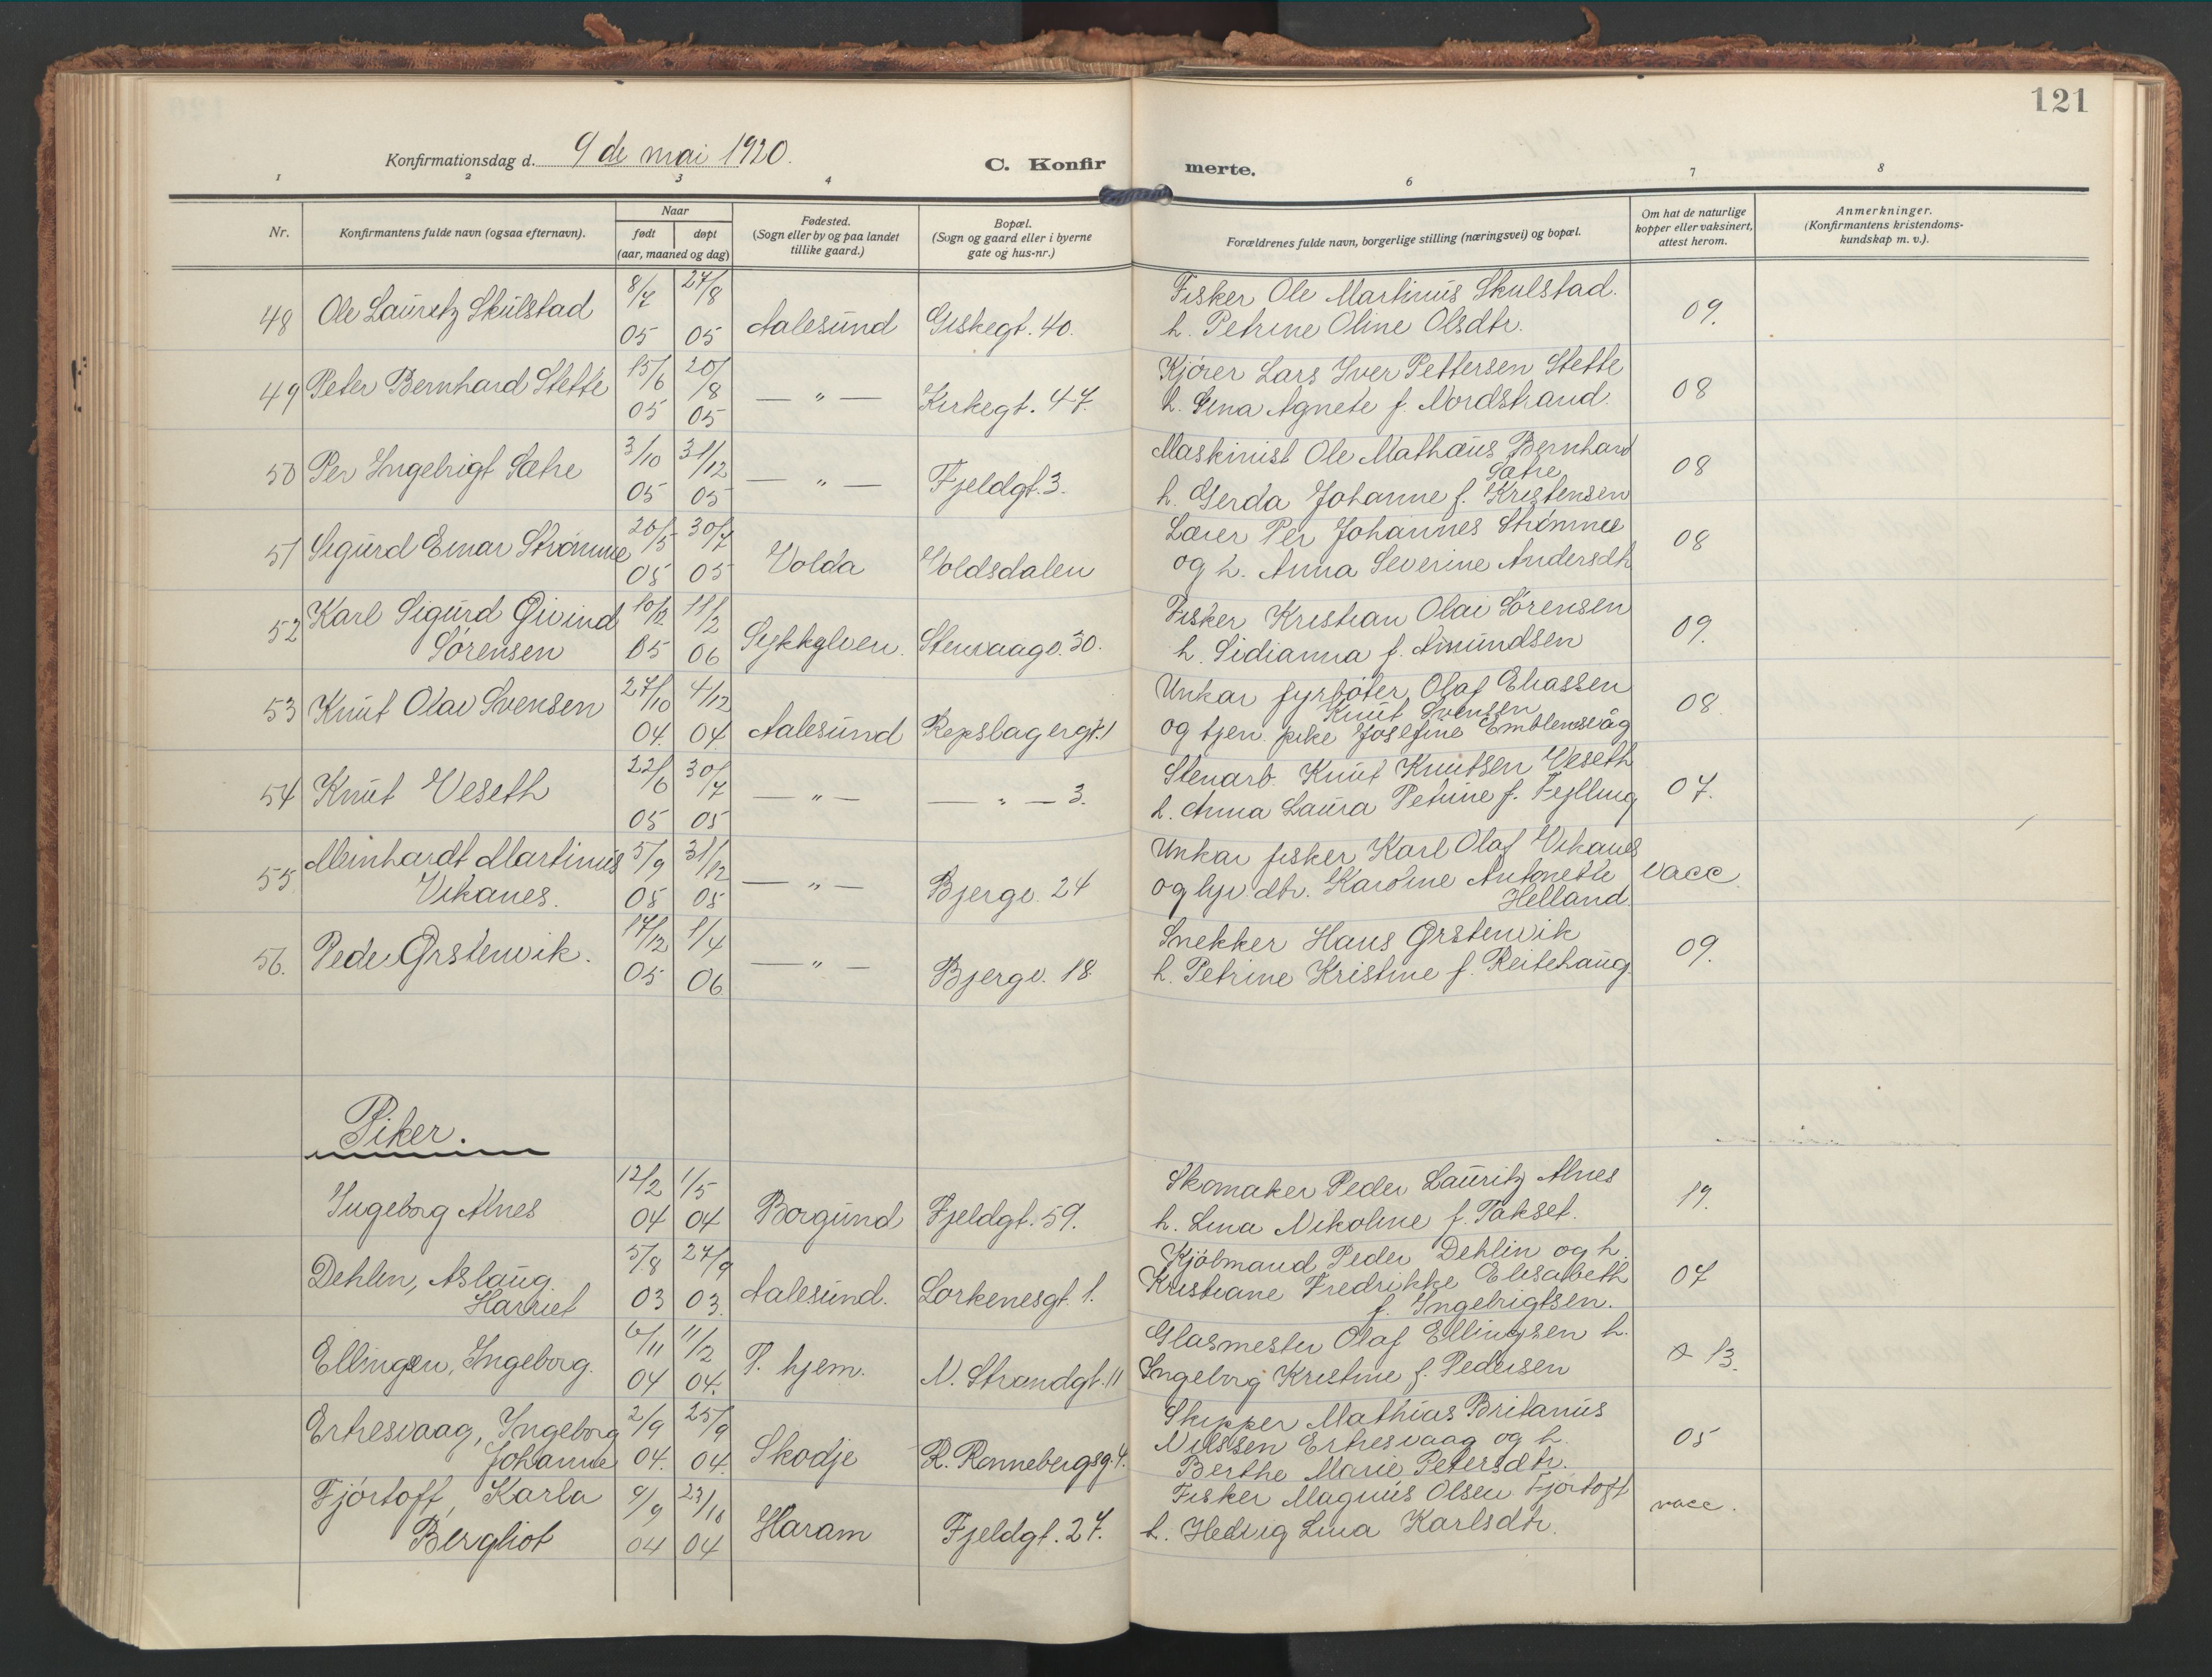 121
Konfirmationsdag d. 9 de mai 1920.
C. Konfir merte.
1 2 3 4 6 7 8
Nr.
Konfirmantens fulde navn (ogsaa efternavn).
Naar
født døpt
(aar, maaned og dag)
Fødested.
(Sogn eller by og paa landet
tillike gaard.)
Bopæl.
(Sogn og gaard eller i byerne
gate og hus-nr.)
Forældrenes fulde navn, borgerlige stilling (næringsvei) og bopæl.
Om hat de naturlige
kopper eller vaksinert,
attest herom.
Anmerkninger.
(Konfirmantens kristendoms-
kundskap m. v.).
48 Ole Lauritz Skulstad 8/7 05 27/8 05 Aalesund Giskegt. 40. Fisker Ole Martinus Skulstad. 09.
h. Petrine Oline Olsdtr.
49 Peter Bernhard Stette 15/6 05 20/8 05 — " — Kirkegt. 47. Kjører Lars Iver Pettersen Stette 08
h. Gina Agnete f. Nordstrand.
50 Per Ingebrigt Sætre 3/10 05 31/12 05 — " — Fjeldgt. 3. Maskinist Ole Mathæus Bernhard 08
Sætre
h. Gerda Johanne f. Kristensen
51 Sigurd Einar Strømme 20/5 05 30/7 05 Volda Voldsdalen Lærer Per Johannes Strømme 08
og h. Anna Severine Andersdtr
52 Karl Sigurd Øivind 10/12 05 11/2 06 Sykkylven. Stenvaagv. 30. Fisker Kristian Olai Sørensen 09.
Sørensen h. Sidianna f. Amundsen
53 Knut Olav Svensen 27/10 04. 4/12 04. Aalesund Repslagergt. 1 Unkar fyrbøter Olaf Eliassen 08.
Knut Svensen
og tjen. pike Josefine Emblemsvåg
54 Knut Veseth 22/6 05 30/7 05 — " — — " — 3. Stenarb. Knut Knutsen Veseth 07.
h. Anna Laura Petrine f. Fylling
55 Meinhardt Martinus 5/9 05 31/12 05 — " — Bjergv. 24 Unkar fisker Karl Olaf Vikanes vacc.
Vikanes. og hjv. dtr. Karoline Antonette
Helland.
56. Peder Ørstenvik. 17/12 05 1/4 06 — " — Bjergv. 18. Snekker Hans Ørstenvik 09.
h. Petrine Kristine f. Reitehaug.
Piker.
Ingeborg Alnes 12/2 04 1/5 04 Borgund Fjeldgt. 59. Skomaker Peder Lauritz Alnes 19.
h. Lina Nikoline f. Takset.
Dehlin, Aslaug 5/8 03 27/9 03. Aalesund. Lorkenesgt. 1. Kjøbmand Peder Dehlin og h. 07
Harriet Kristiane Fredrikke Elisabeth
f. Ingebrigtsen.
Ellingsen, Ingeborg. 6/11 04 11/2 04. T. hjem. N. Strandgt. 11 Glasmester Olaf Ellingsen h. 13.
Ingeborg Kristine f. Pedersen
Erkesvaag, Ingeborg 2/9 04. 25/9 04. Skodje R. Rønnebergsg. 4. Skipper Mathias Britanius 05
Johanne Nilssen Erkesvaag og h.
Berthe Marie Petersdtr.
Fjørtoft, Karla 9/9 04 23/10 04 Haram Fjeldgt. 27. Fisker Magnus Olsen Fjørtoft vacc.
Bergliot h. Hedvig Lina Karlsdtr.